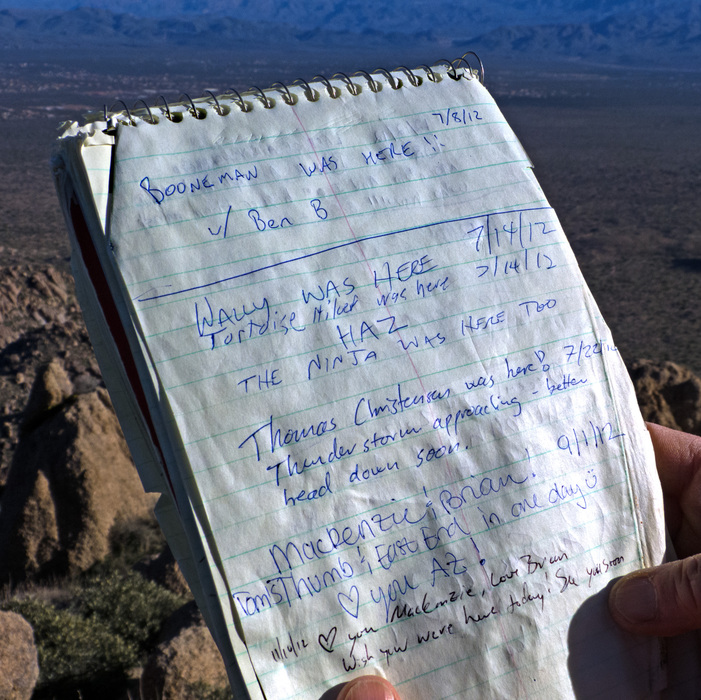 7/8/12
BOONEMAN WAS HERE !!
w/ Ben B
WALLY WAS HERE 7/14/12
Tortoise Hiker was here 7/14/12
HAZ
THE NINJA WAS HERE TOO
Thomas Christensen was here! 7/22/12
Thunder storm approaching - better
head down soon.
Mackenzie & Brian! 9/1/12
Tom's Thumb & East End in one day ☺
♡ you AZ!
♡ you Mackenzie, Love Brian
Wish you were here today! See you soon